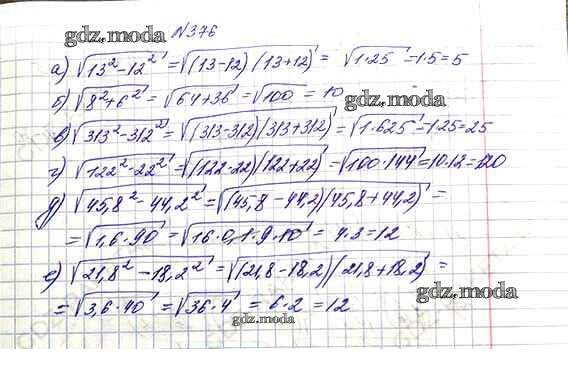 gdz.moda №376
а) √13² - 12² = √(13-12)(13+12) = √1·25 = 1·5 = 5
б) √8² + 6² = √64+36 = √100 = 10 gdz.moda
в) √313² - 312² = √(313-312)(313+312) = √1·625 = 1·25 = 25
г) √122² - 22² = √(122-22)(122+22) = √100·144 = 10·12 = 120
д) √45,8² - 44,2² = √(45,8-44,2)(45,8+44,2) =
= √1,6·90 = √16·0,1·9·10 = 4·3 = 12
е) √21,8² - 18,2² = √(21,8-18,2)(21,8+18,2) =
= √3,6·40 = √36·4 = 6·2 = 12 gdz.moda
gdz.moda